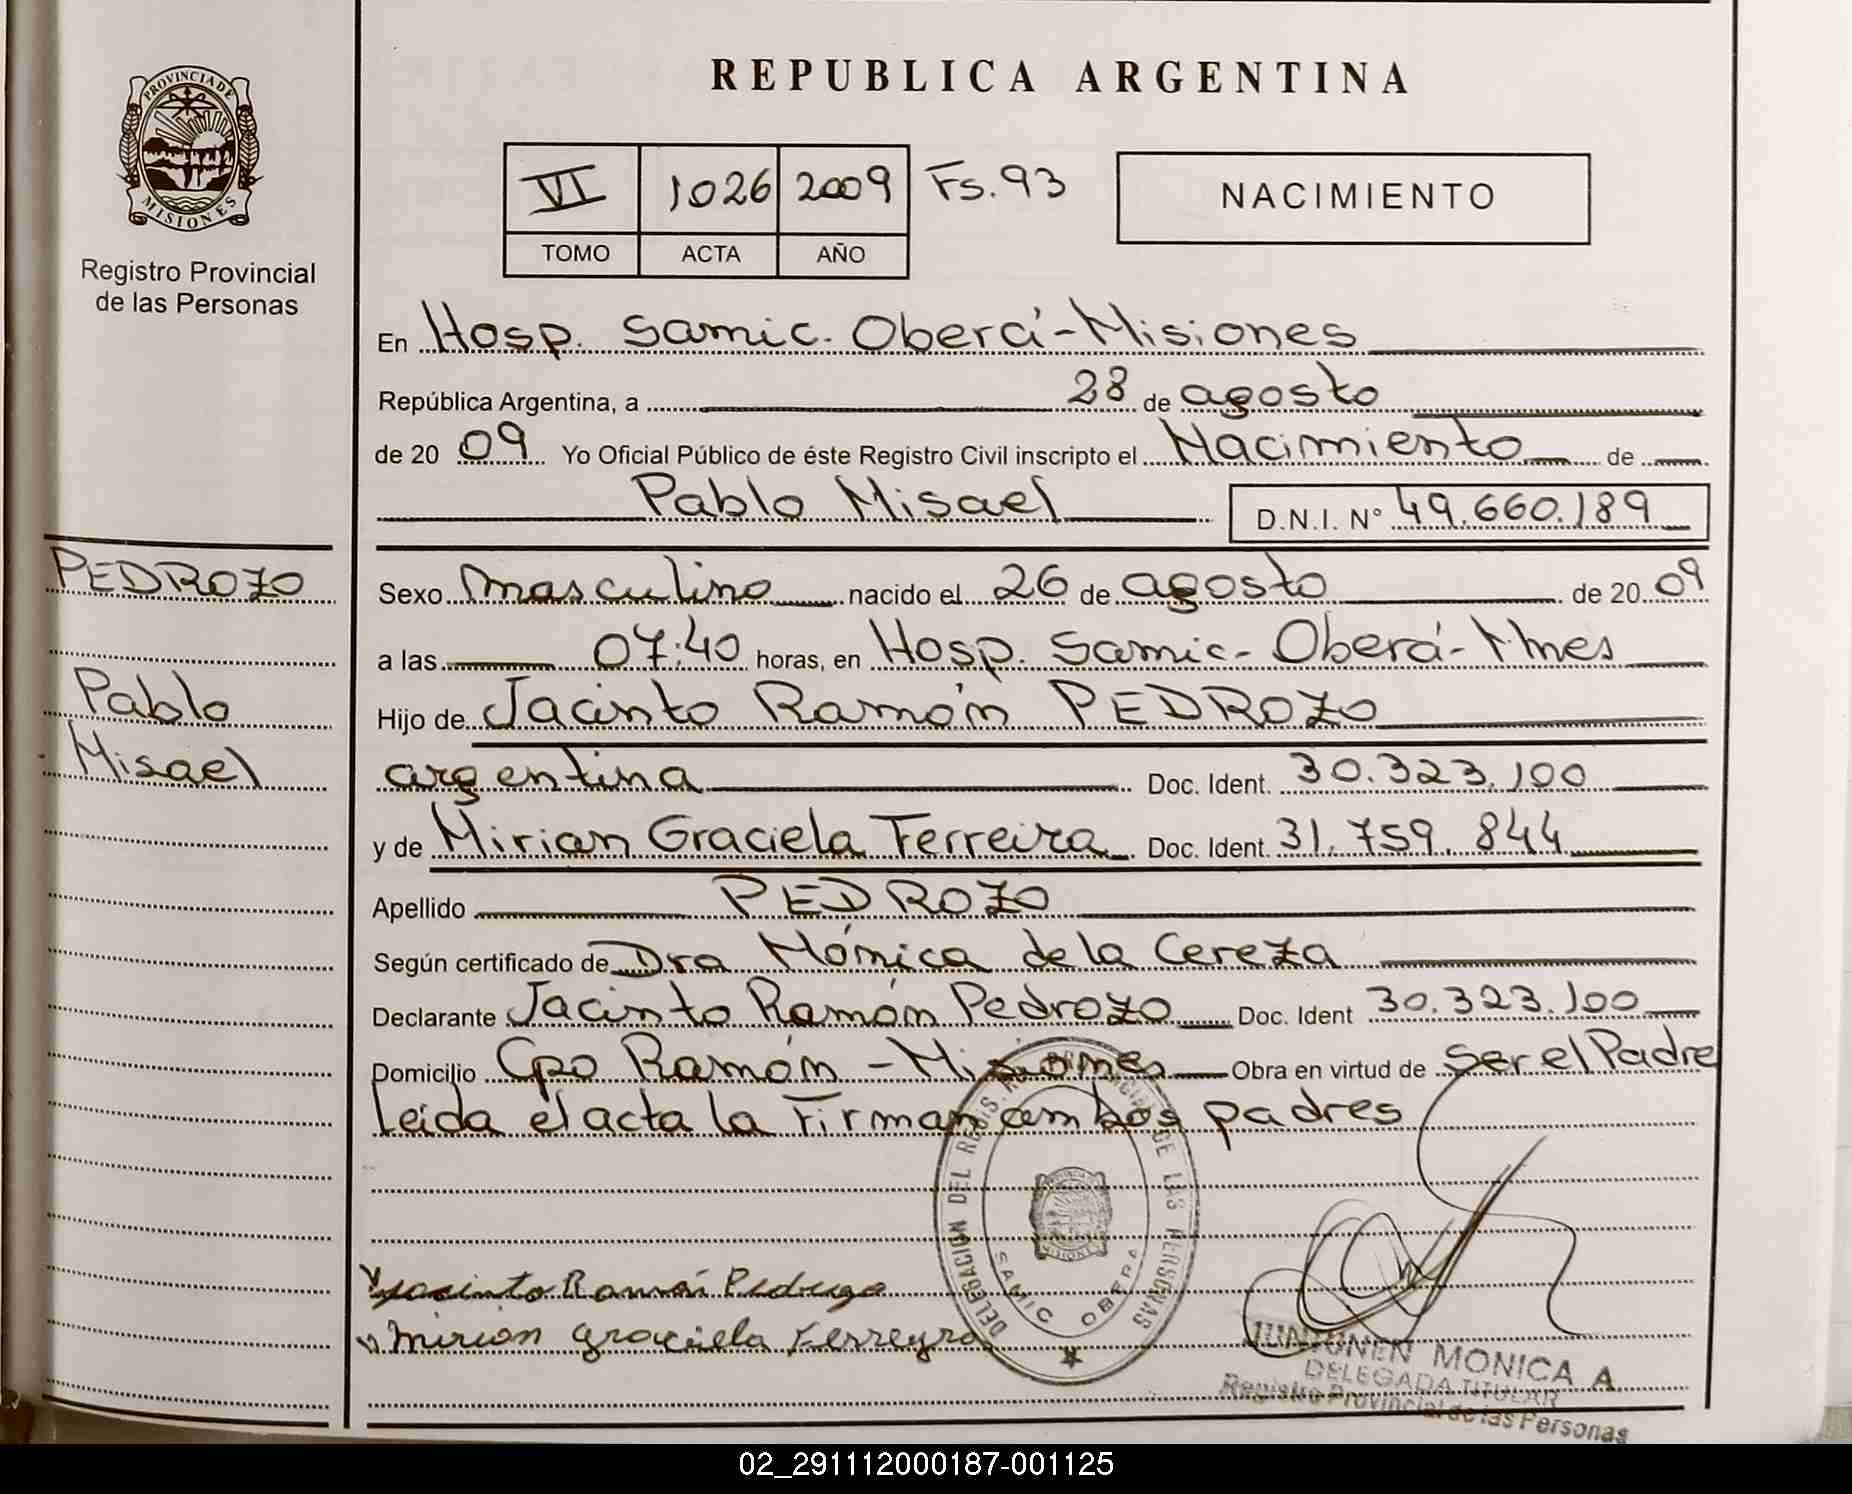 REPUBLICA ARGENTINA
PROVINCIA DE
MISIONES
Registro Provincial
de las Personas
VI 1026 2009 Fs. 93
TOMO ACTA AÑO
NACIMIENTO
En Hosp. Samic. Oberá - Misiones
República Argentina, a 28 de agosto
de 20 09 Yo Oficial Público de éste Registro Civil inscripto el Nacimiento de
Pablo Misael D.N.I. N° 49.660.189
PEDROZO
Pablo
Misael
Sexo masculino nacido el 26 de agosto de 20 09
a las 07:40 horas, en Hosp. Samic - Oberá - Mnes
Hijo de Jacinto Ramón PEDROZO
argentina Doc. Ident. 30.323.100
y de Mirian Graciela Ferreira Doc. Ident. 31.759.844
Apellido PEDROZO
Según certificado de Dra Mónica de la Cereza
Declarante Jacinto Ramón Pedrozo Doc. Ident 30.323.100
Domicilio Cpo Ramón - Misiones Obra en virtud de ser el Padre
Leida el acta la Firman ambos padres
DELEGACION DEL REGIS. PROVINCIAL DE LAS PERSONAS
SAMIC OBERA
Jacinto Ramón Pedrozo
Mirian Graciela Ferreyra
JUNTUNEN MONICA A.
DELEGADA TITULAR
Registro Provincial de las Personas
02_291112000187-001125